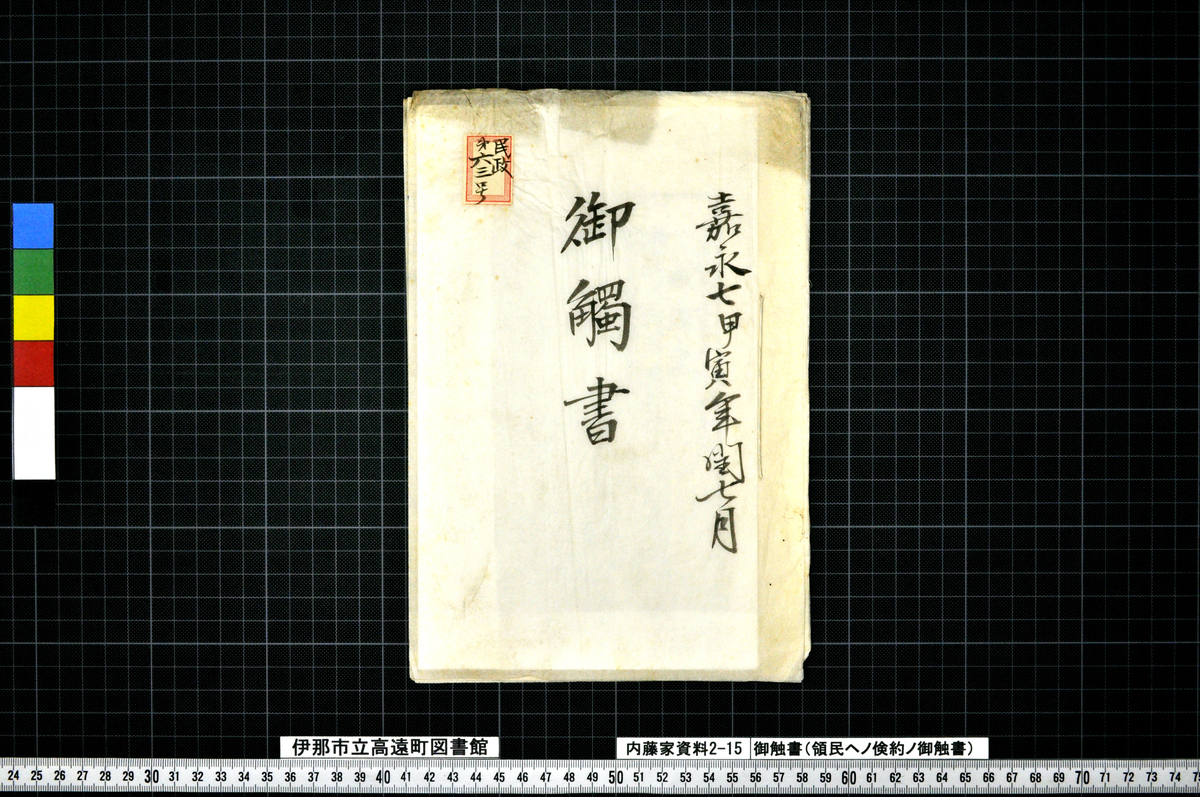 嘉永七甲寅年閏七月
御觸書
民政
第六三号
伊那市立高遠町図書館
内藤家資料2-15
御触書(領民ヘノ倹約ノ御触書)
24 25 26 27 28 29 30 31 32 33 34 35 36 37 38 39 40 41 42 43 44 45 46 47 48 49 50 51 52 53 54 55 56 57 58 59 60 61 62 63 64 65 66 67 68 69 70 71 72 73 74